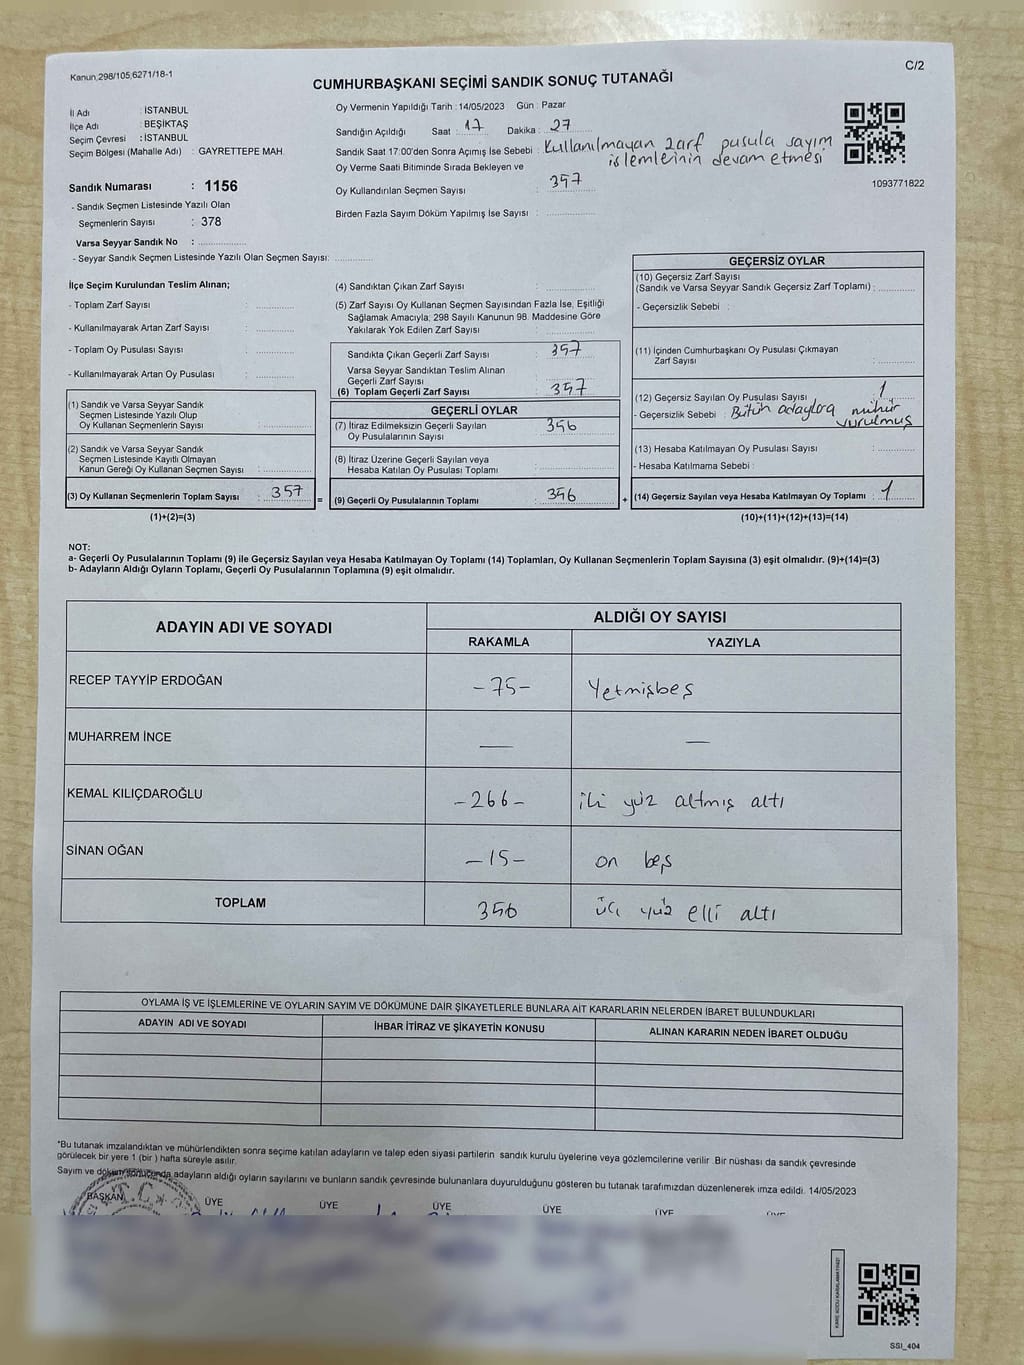 Kanun,298/105,6271/18-1
C/2
CUMHURBAŞKANI SEÇİMİ SANDIK SONUÇ TUTANAĞI
İl Adı : İSTANBUL
İlçe Adı : BEŞİKTAŞ
Seçim Çevresi : İSTANBUL
Seçim Bölgesi (Mahalle Adı) : GAYRETTEPE MAH.
Oy Vermenin Yapıldığı Tarih : 14/05/2023 Gün : Pazar
Sandığın Açıldığı Saat : 17 Dakika : 27
Sandık Saat 17:00'den Sonra Açımış İse Sebebi : Kullanılmayan zarf pusula sayım
işlemlerinin devam etmesi
Oy Verme Saati Bitiminde Sırada Bekleyen ve
Oy Kullandırılan Seçmen Sayısı : 357
Birden Fazla Sayım Döküm Yapılmış İse Sayısı :
1093771822
Sandık Numarası : 1156
- Sandık Seçmen Listesinde Yazılı Olan
Seçmenlerin Sayısı : 378
Varsa Seyyar Sandık No :
- Seyyar Sandık Seçmen Listesinde Yazılı Olan Seçmen Sayısı:
İlçe Seçim Kurulundan Teslim Alınan;
- Toplam Zarf Sayısı :
- Kullanılmayarak Artan Zarf Sayısı :
- Toplam Oy Pusulası Sayısı :
- Kullanılmayarak Artan Oy Pusulası :
(1) Sandık ve Varsa Seyyar Sandık
Seçmen Listesinde Yazılı Olup
Oy Kullanan Seçmenlerin Sayısı :
(2) Sandık ve Varsa Seyyar Sandık
Seçmen Listesinde Kayıtlı Olmayan
Kanun Gereği Oy Kullanan Seçmen Sayısı :
(3) Oy Kullanan Seçmenlerin Toplam Sayısı : 357
(1)+(2)=(3)
(4) Sandıktan Çıkan Zarf Sayısı :
(5) Zarf Sayısı Oy Kullanan Seçmen Sayısından Fazla İse, Eşitliği
Sağlamak Amacıyla; 298 Sayılı Kanunun 98. Maddesine Göre
Yakılarak Yok Edilen Zarf Sayısı :
Sandıkta Çıkan Geçerli Zarf Sayısı : 357
Varsa Seyyar Sandıktan Teslim Alınan
Geçerli Zarf Sayısı :
(6) Toplam Geçerli Zarf Sayısı : 357
GEÇERLİ OYLAR
(7) İtiraz Edilmeksizin Geçerli Sayılan
Oy Pusulalarının Sayısı : 356
(8) İtiraz Üzerine Geçerli Sayılan veya
Hesaba Katılan Oy Pusulası Toplamı :
= (9) Geçerli Oy Pusulalarının Toplamı : 356 +
GEÇERSİZ OYLAR
(10) Geçersiz Zarf Sayısı
(Sandık ve Varsa Seyyar Sandık Geçersiz Zarf Toplamı) :
- Geçersizlik Sebebi :
(11) İçinden Cumhurbaşkanı Oy Pusulası Çıkmayan
Zarf Sayısı :
(12) Geçersiz Sayılan Oy Pusulası Sayısı : 1
- Geçersizlik Sebebi : Bütün adaylara mühür
vurulmuş
(13) Hesaba Katılmayan Oy Pusulası Sayısı :
- Hesaba Katılmama Sebebi :
(14) Geçersiz Sayılan veya Hesaba Katılmayan Oy Toplamı : 1
(10)+(11)+(12)+(13)=(14)
NOT:
a- Geçerli Oy Pusulalarının Toplamı (9) ile Geçersiz Sayılan veya Hesaba Katılmayan Oy Toplamı (14) Toplamları, Oy Kullanan Seçmenlerin Toplam Sayısına (3) eşit olmalıdır. (9)+(14)=(3)
b- Adayların Aldığı Oyların Toplamı, Geçerli Oy Pusulalarının Toplamına (9) eşit olmalıdır.
ADAYIN ADI VE SOYADI
ALDIĞI OY SAYISI
RAKAMLA YAZIYLA
RECEP TAYYİP ERDOĞAN -75- Yetmişbeş
MUHARREM İNCE — —
KEMAL KILIÇDAROĞLU -266- iki yüz altmış altı
SİNAN OĞAN -15- on beş
TOPLAM 356 üç yüz elli altı
OYLAMA İŞ VE İŞLEMLERİNE VE OYLARIN SAYIM VE DÖKÜMÜNE DAİR ŞİKAYETLERLE BUNLARA AİT KARARLARIN NELERDEN İBARET BULUNDUKLARI
ADAYIN ADI VE SOYADI İHBAR İTİRAZ VE ŞİKAYETİN KONUSU ALINAN KARARIN NEDEN İBARET OLDUĞU
*Bu tutanak imzalandıktan ve mühürlendikten sonra seçime katılan adayların ve talep eden siyasi partilerin sandık kurulu üyelerine veya gözlemcilerine verilir .Bir nüshası da sandık çevresinde
görülecek bir yere 1 (bir ) hafta süreyle asılır.
Sayım ve döküm sonucunda adayların aldığı oyların sayılarını ve bunların sandık çevresinde bulunanlara duyurulduğunu gösteren bu tutanak tarafımızdan düzenlenerek imza edildi. 14/05/2023
BAŞKAN ÜYE ÜYE ÜYE ÜYE ÜYE ÜYE
T.C.
SSI_404